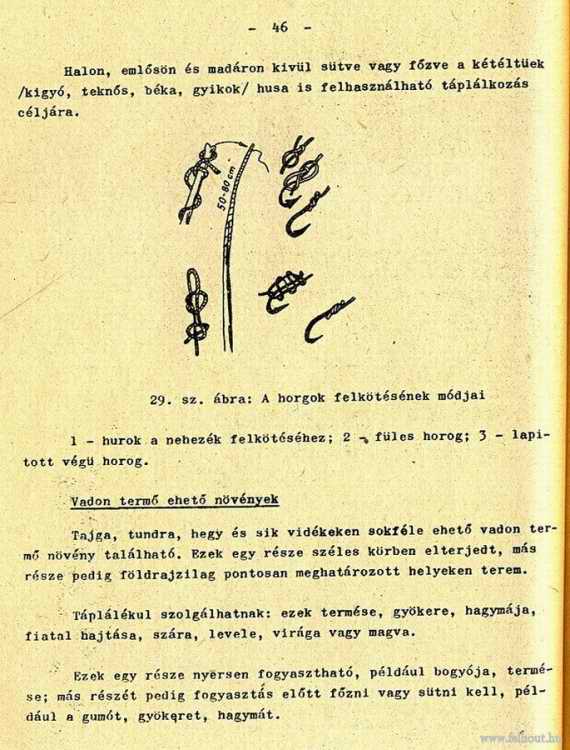 - 46 -
Halon, emlősön és madáron kivül sütve vagy főzve a kétéltüek
/kigyó, teknős, béka, gyikok/ husa is felhasználható táplálkozás
céljára.
50-80 cm
29. sz. ábra: A horgok felkötésének módjai
1 - hurok a nehezék felkötéséhez; 2 - füles horog; 3 - lapi-
tott végü horog.
Vadon termő ehető növények
Tajga, tundra, hegy és sik vidékeken sokféle ehető vadon ter-
mő növény található. Ezek egy része széles körben elterjedt, más
része pedig földrajzilag pontosan meghatározott helyeken terem.
Táplálékul szolgálhatnak: ezek termése, gyökere, hagymája,
fiatal hajtása, szára, levele, virága vagy magva.
Ezek egy része nyersen fogyasztható, például bogyója, termé-
se; más részét pedig fogyasztás előtt főzni vagy sütni kell, pél-
dául a gumót, gyökeret, hagymát.
www.fallout.hu